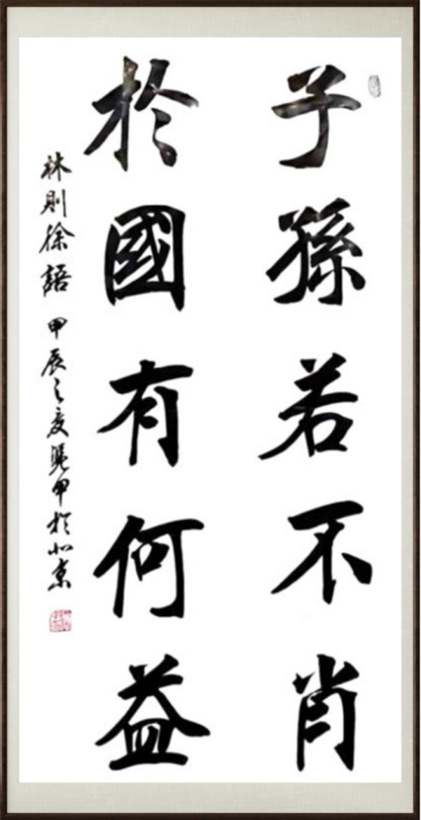 子孫若不肖
於國有何益
林則徐語 甲辰之夏 甲於北京